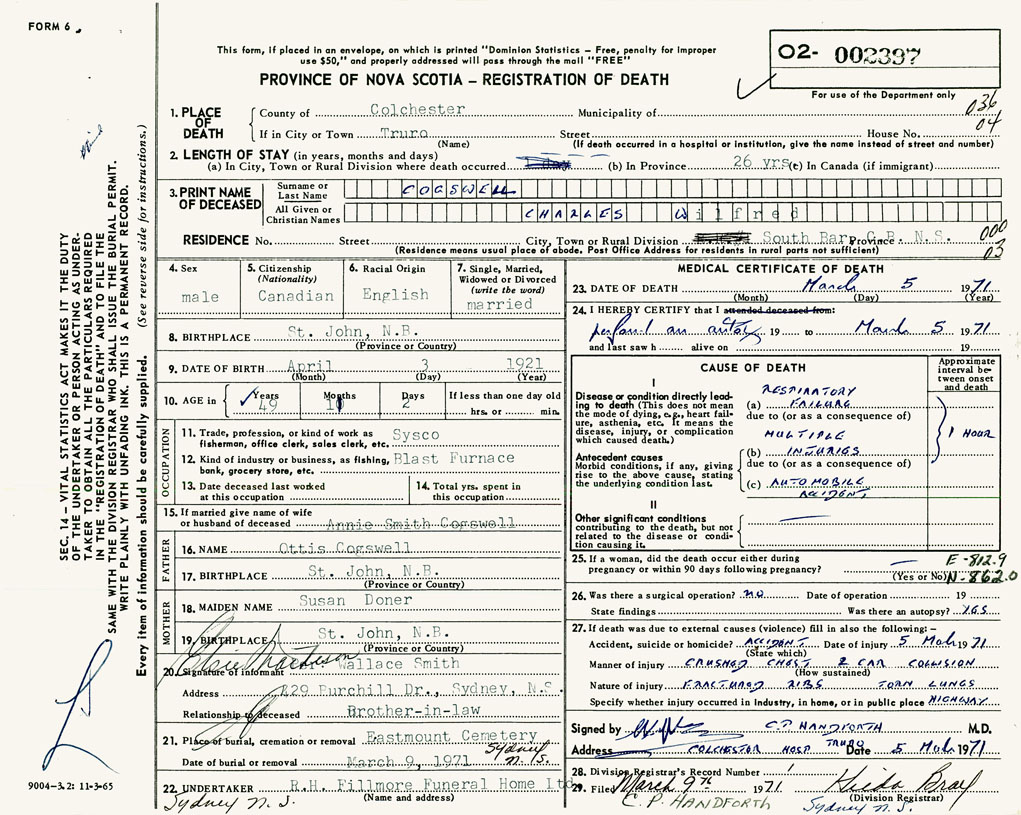 FORM 6
This form, if placed in an envelope, on which is printed "Dominion Statistics – Free, penalty for improper
use $50," and properly addressed will pass through the mail "FREE"
PROVINCE OF NOVA SCOTIA – REGISTRATION OF DEATH
O2- 002397
For use of the Department only
036
04
1. PLACE OF DEATH
County of Colchester Municipality of
If in City or Town Truro Street House No.
(Name) (If death occurred in a hospital or institution, give the name instead of street and number)
2. LENGTH OF STAY (in years, months and days)
(a) In City, Town or Rural Division where death occurred (b) In Province 26 yrs (c) In Canada (if immigrant)
3. PRINT NAME OF DECEASED
Surname or Last Name COGSWELL
All Given or Christian Names CHARLES Wilfred
RESIDENCE No. Street City, Town or Rural Division South Bar, C.B. Province N.S.
000
03
(Residence means usual place of abode. Post Office Address for residents in rural parts not sufficient)
4. Sex
male
5. Citizenship (Nationality)
Canadian
6. Racial Origin
English
7. Single, Married, Widowed or Divorced (write the word)
married
8. BIRTHPLACE St. John, N.B.
(Province or Country)
9. DATE OF BIRTH April 3 1921
(Month) (Day) (Year)
10. AGE in Years Months Days If less than one day old
49 2 hrs. or min.
OCCUPATION
11. Trade, profession, or kind of work as fisherman, office clerk, sales clerk, etc. Sysco
12. Kind of industry or business, as fishing, bank, grocery store, etc. Blast Furnace
13. Date deceased last worked at this occupation
14. Total yrs. spent in this occupation
15. If married give name of wife or husband of deceased Annie Smith Cogswell
FATHER
16. NAME Ottis Cogswell
17. BIRTHPLACE St. John, N.B.
(Province or Country)
MOTHER
18. MAIDEN NAME Susan Doner
19. BIRTHPLACE St. John, N.B.
(Province or Country)
20. Signature of informant Wallace Smith
Address 829 Burchill Dr., Sydney, N.S.
Relationship to deceased Brother-in-law
21. Place of burial, cremation or removal Eastmount Cemetery
Sydney N.S.
Date of burial or removal March 9, 1971
22. UNDERTAKER R.H. Fillmore Funeral Home Ltd
(Name and address)
Sydney N.S.
MEDICAL CERTIFICATE OF DEATH
23. DATE OF DEATH March 5 1971
(Month) (Day) (Year)
24. I HEREBY CERTIFY that I attended deceased from:
19 to March 5 1971
and last saw h alive on 19
CAUSE OF DEATH
Approximate interval between onset and death
I
Disease or condition directly leading to death (This does not mean the mode of dying, e.g., heart failure, asthenia, etc. It means the disease, injury, or complication which caused death.)
(a) RESPIRATORY FAILURE
due to (or as a consequence of)
Antecedent causes
Morbid conditions, if any, giving rise to the above cause, stating the underlying condition last.
(b) MULTIPLE INJURIES
due to (or as a consequence of)
(c) AUTOMOBILE ACCIDENT
1 HOUR
II
Other significant conditions contributing to the death, but not related to the disease or condition causing it.
25. If a woman, did the death occur either during pregnancy or within 90 days following pregnancy?
(Yes or No)
E-812.9
N-862.0
26. Was there a surgical operation? NO Date of operation 19
State findings Was there an autopsy? YES
27. If death was due to external causes (violence) fill in also the following:–
Accident, suicide or homicide? ACCIDENT Date of injury 5 Mch 1971
(State which)
Manner of injury CRUSHED CHEST 2 CAR COLLISION
(How sustained)
Nature of injury FRACTURED RIBS TORN LUNGS
Specify whether injury occurred in industry, in home, or in public place HIGHWAY
Signed by C.P. HANDFORTH M.D.
Address COLCHESTER HOSP TRURO Date 5 Mch 1971
28. Division Registrar's Record Number
29. Filed March 9th 1971
(Division Registrar)
C.P. HANDFORTH
Sydney N.S.
SEC. 14 – VITAL STATISTICS ACT MAKES IT THE DUTY
OF THE UNDERTAKER OR PERSON ACTING AS UNDER-
TAKER TO OBTAIN ALL THE PARTICULARS REQUIRED
IN THE "REGISTRATION OF DEATH" AND TO FILE THE
SAME WITH THE DIVISION REGISTRAR WHO SHALL ISSUE THE BURIAL PERMIT.
WRITE PLAINLY WITH UNFADING INK. THIS IS A PERMANENT RECORD.
Every item of information should be carefully supplied. (See reverse side for instructions.)
9004-3.2: 11-3-65